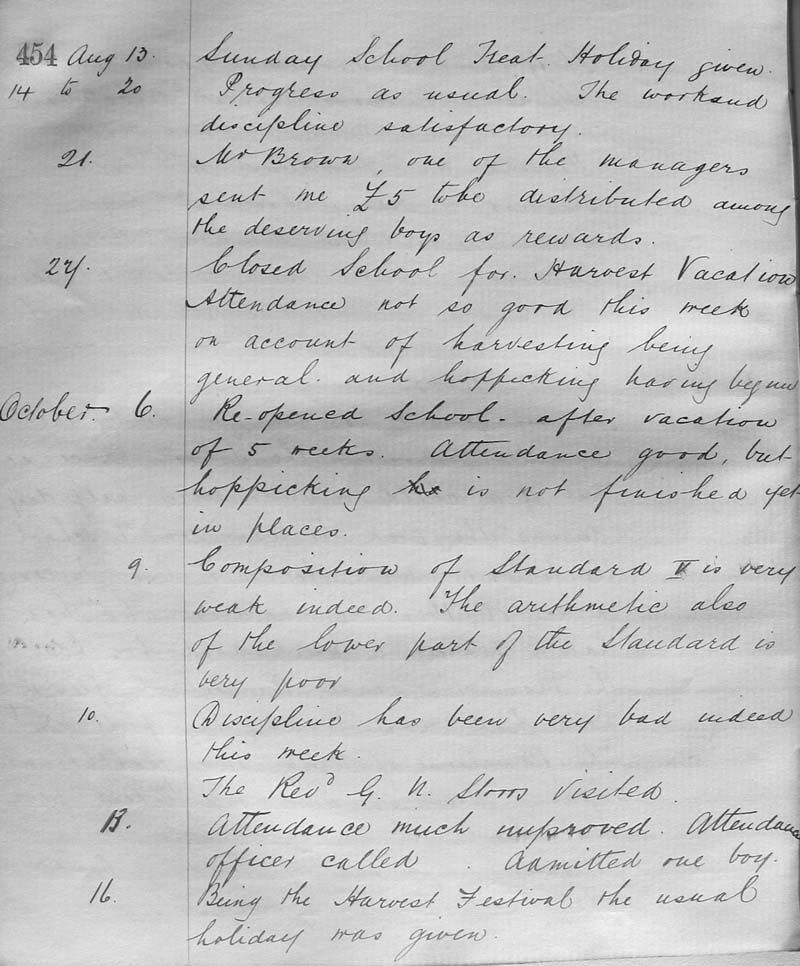 454 Aug 13. Sunday School Treat. Holiday given.
14 to 20 Progress as usual. The work and
discipline satisfactory.
21. Mr Brown, one of the managers
sent me £5 to be distributed among
the deserving boys as rewards.
27. Closed School for Harvest Vacation
Attendance not so good this week
on account of harvesting being
general. and hoppicking having begun
October 6. Re-opened School - after vacation
of 5 weeks. Attendance good, but
hoppicking is not finished yet
in places.
9. Composition of Standard V is very
weak indeed. The arithmetic also
of the lower part of the Standard is
very poor
10. Discipline has been very bad indeed
this week.
The Revd G. N. Storrs visited.
13. Attendance much improved. Attendance
officer called. Admitted one boy.
16. Being the Harvest Festival the usual
holiday was given.